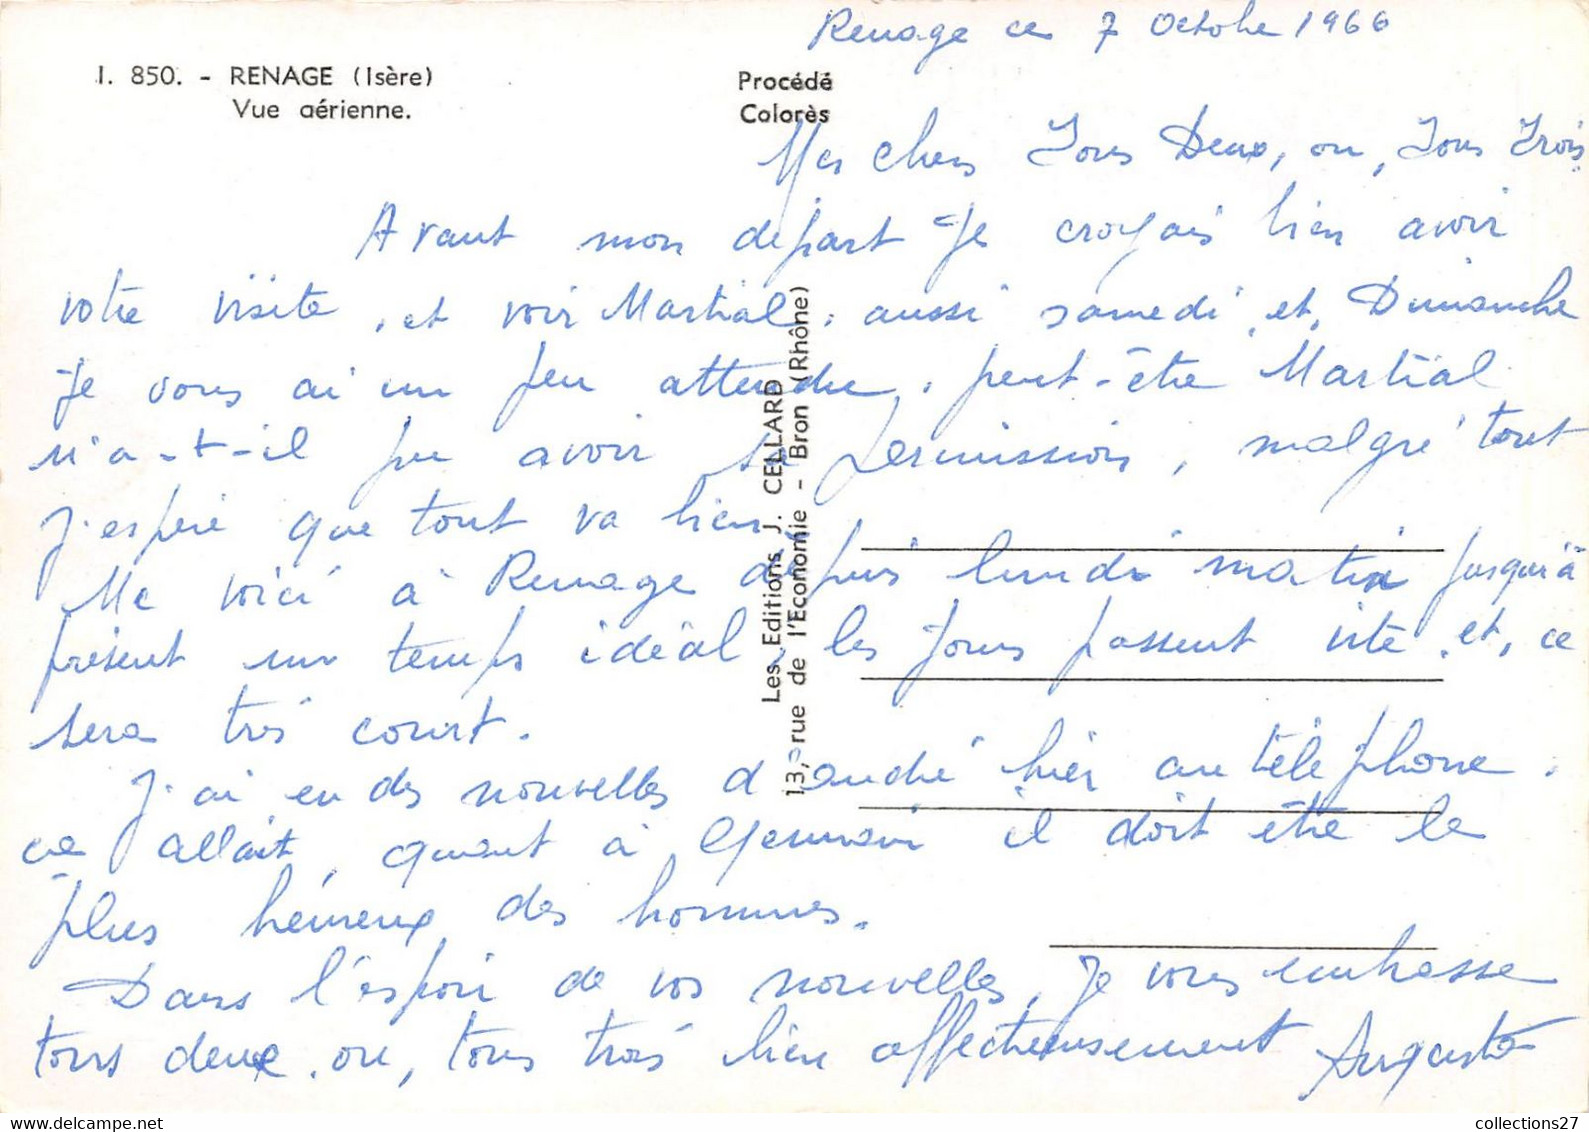 Renage ce 7 Octobre 1966
I. 850. - RENAGE (Isère)
Vue aérienne.
Procédé
Colorès
Mes chers Tous Deux, ou, Tous Trois.
Avant mon départ Je croyais bien avoir
votre visite, et voir Martial, aussi samedi et, Dimanche
Je vous ai un peu attendu, peut-être Martial
n'a-t-il pu avoir sa permission, malgré tout
J'espère que tout va bien
Me voici à Renage depuis lundi matin Jusqu'à
présent un temps idéal, les Jours passent vite et, ce
sera très court.
J'ai eu des nouvelles d'andré hier au téléphone.
ça allait, quant à Germain il doit être le
plus héureux des hommes.
Dans l'espoir de vos nouvelles, Je vous embrasse
tous deux, ou, tous trois bien affectueusement Auguste
Les Editions J. CELLARD
13, rue de l'Economie - Bron (Rhône)
collections27